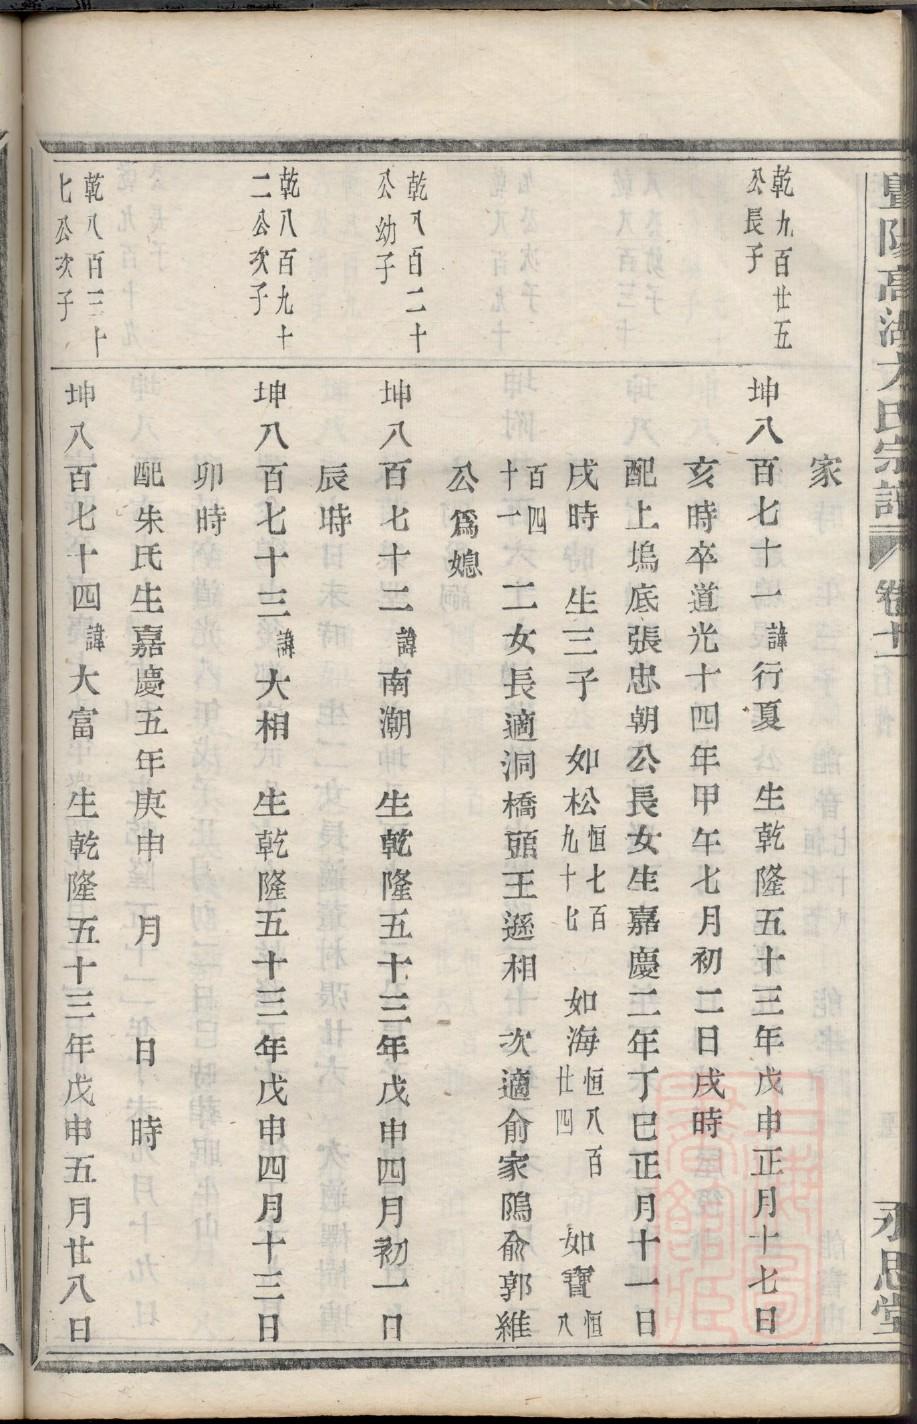 暨陽高湖大氏宗譜 卷十一 永思堂
家
乾九百廿五公長子
坤八百七十一諱行夏 生乾隆五十三年戊申正月十七日
亥時卒道光十四年甲午七月初二日戌時
配上塢底張忠朝公長女生嘉慶二年丁巳正月十一日
戌時 生三子 如松恒七百九十七 如海恒八百廿四 如寶恒八
百四十一 二女長適洞橋頭王遜相 次適俞家隖俞郭維
公爲媳
乾八百二十公幼子
坤八百七十二諱南潮 生乾隆五十三年戊申四月初一日
辰時
乾八百九十二公次子
坤八百七十三諱大相 生乾隆五十三年戊申四月十三日
卯時
配朱氏生嘉慶五年庚申 月 日 時
乾八百三十七公次子
坤八百七十四諱大富 生乾隆五十三年戊申五月廿八日